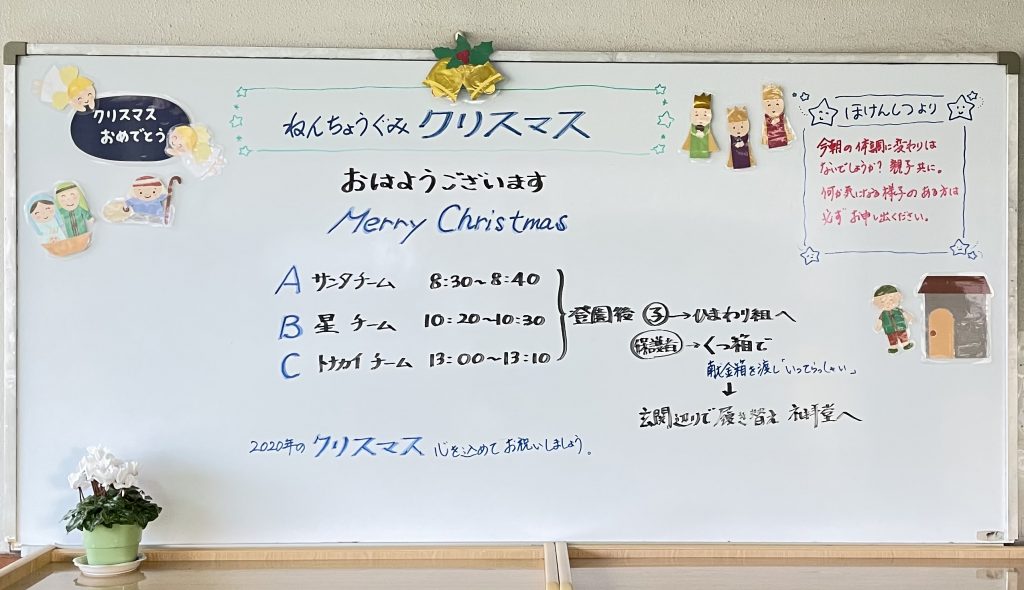 クリスマス
おめでとう
ねんちょうぐみ クリスマス
おはようございます
Merry Christmas
A サンタチーム 8:30~8:40
B 星 チーム 10:20~10:30
C トナカイ チーム 13:00~13:10
登園後 子→ひまわり組へ
保護者→くつ箱で
献金箱を渡し「いってらっしゃい」
↓
玄関辺りで履き替え 礼拝堂へ
2020年の クリスマス 心を込めて お祝いしましょう。
ほけんしつより
今朝の体調に変わりは
ないでしょうか? 親子共に。
何か気になる様子のある方は
必ず お申し出ください。